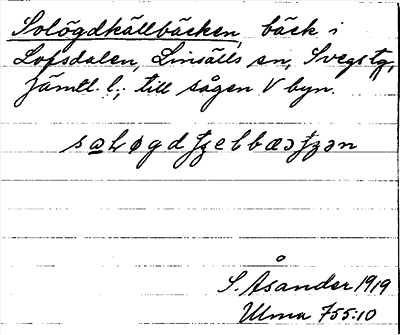 Solögdkällbäcken, bäck i
Lofsdalen, Linsälls sn, Svegs tg,
Jämtl. l.; till sågen V byn.
S. Åsander 1919
Ulma 755:10